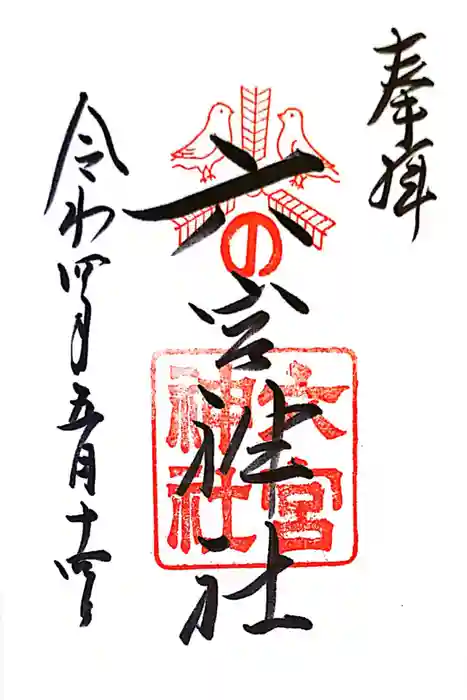 奉拝
六の宮神社
六宮
神社
令和四年五月十四日